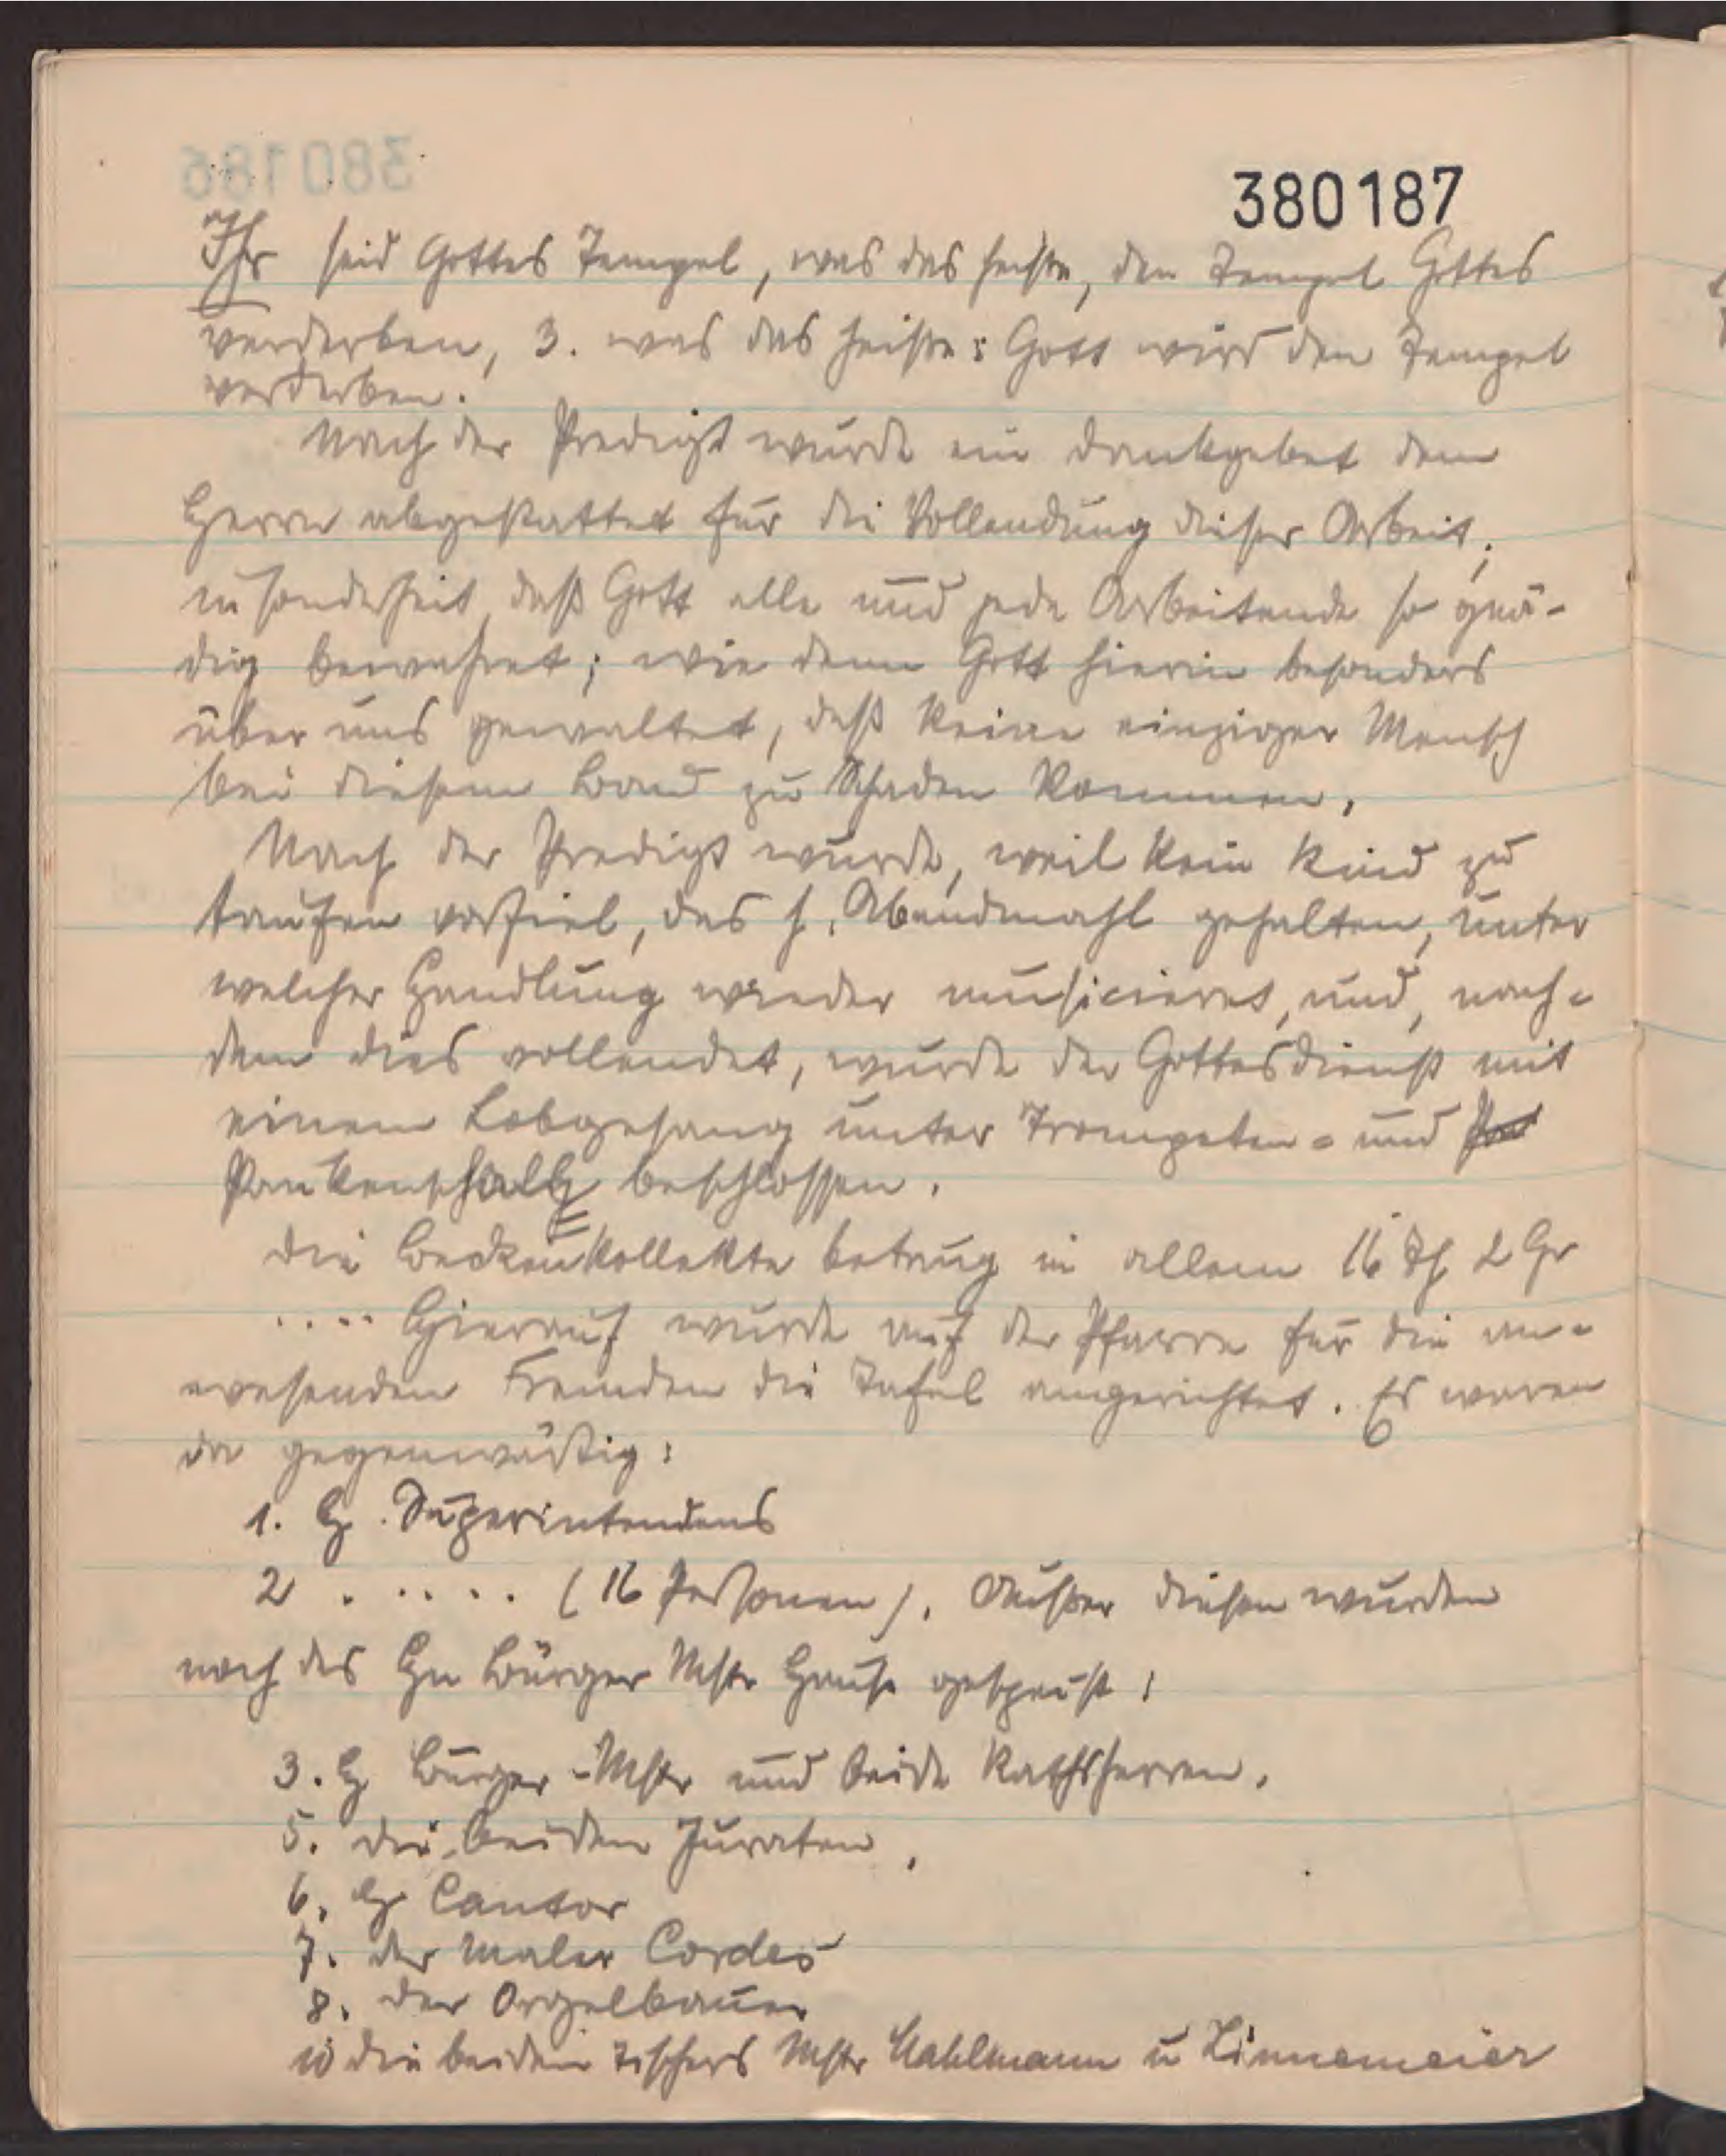 380186
380187
Ihr seid Gottes Tempel, was das heiße, den Tempel Gottes
verderben, 3. was das heiße: Gott wird den Tempel
verderben.
Nach der Predigt wurde ein Dankgebet dem
Herrn abgestattet für die Vollendung dieser Arbeit,
insonderheit, daß Gott alle und jede Arbeitende so gnä-
dig bewahret; wie denn Gott hierin besonders
über uns gewaltet, daß keine einziger Mensch
bei diesem Bau zu Schaden kommen.
Nach der Predigt wurde, weil kein Kind zu
taufen vorfiel, das h. Abendmahl gehalten, unter
welcher Handlung wieder musicieret, und, nach-
dem dies vollendet, wurde der Gottesdienst mit
einem Lobgesang unter Trompeten- und
Paukenschall beschlossen.
Die Beckenkollekte betrug in allem 16 Th 2 Gr
.... Hierauf wurde auf der Pfarre für die an-
wesenden Fremden die Tafel angerichtet. Es waren
da gegenwärtig:
1. H. Superintendens
2 ..... (16 Personen). Außer diesen wurden
noch des Hn Bürger Mstr Hause gespeist:
3. H Bürger-Mstr und beide Rathsherren.
5. die beiden Juraten,
6. H Cantor
7. der Maler Cordes
8. der Orgelbauer
10 die beiden Tischers Mstr Kahlmann u Linnemeier